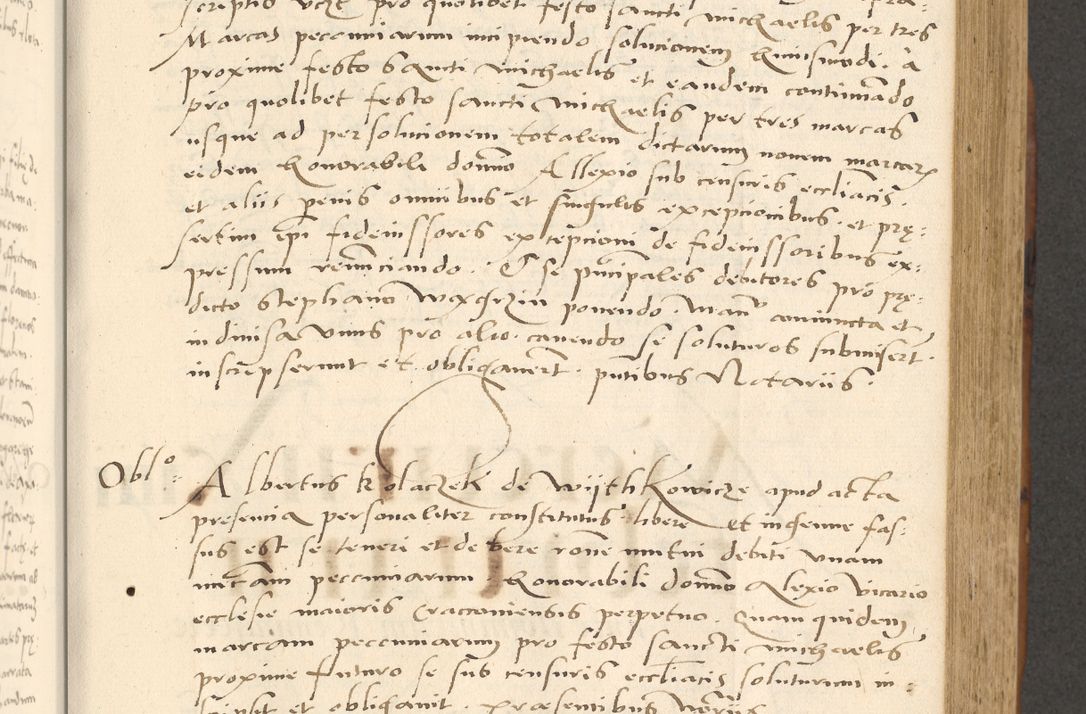 scriptis pro quolibet festo sancti Michaelis per tres
Marcas pecuniarum incipiendo solucionem huiusmodi a
proxime festo Sancti Michaelis et eandem continuãdo
pro quolibet festo sancti Michaelis per tres marcas
usque ad persolucionem totalem dictarum novem marcar
eidem honorabili domno Allexio sub censuris eccliacis
et aliis penis omnibus et singulis excepcionibus et prę:
sertim epi fideiussores excepcioni de fideiussoribus ex:
pressum renũciando. Et se principales debitores pro prę:
dicto Stephano ponendo. Manu coniuncta et
indivisa unus pro alio cavendo se soluturos submisert.
inscripserunt et obligavert. pñtibus Notariis.
Oblo
Albertus Kolaczek de Wythkowicze apud acta
presencia personaliter constitutus libere et ingenue fas:
sus est se teneri et debere rone mutui debiti unam
mrcam pecuniarum. honorabili domno Alexio Vicario
ecclesie maioris Cracoviensis perpetuo. Quam quidem
marcam pecuniarum pro festo sancti Michaelis
proxime futuro se sub censuris eccliacis soluturum in:
scripsit et obligavit. Praesentibus